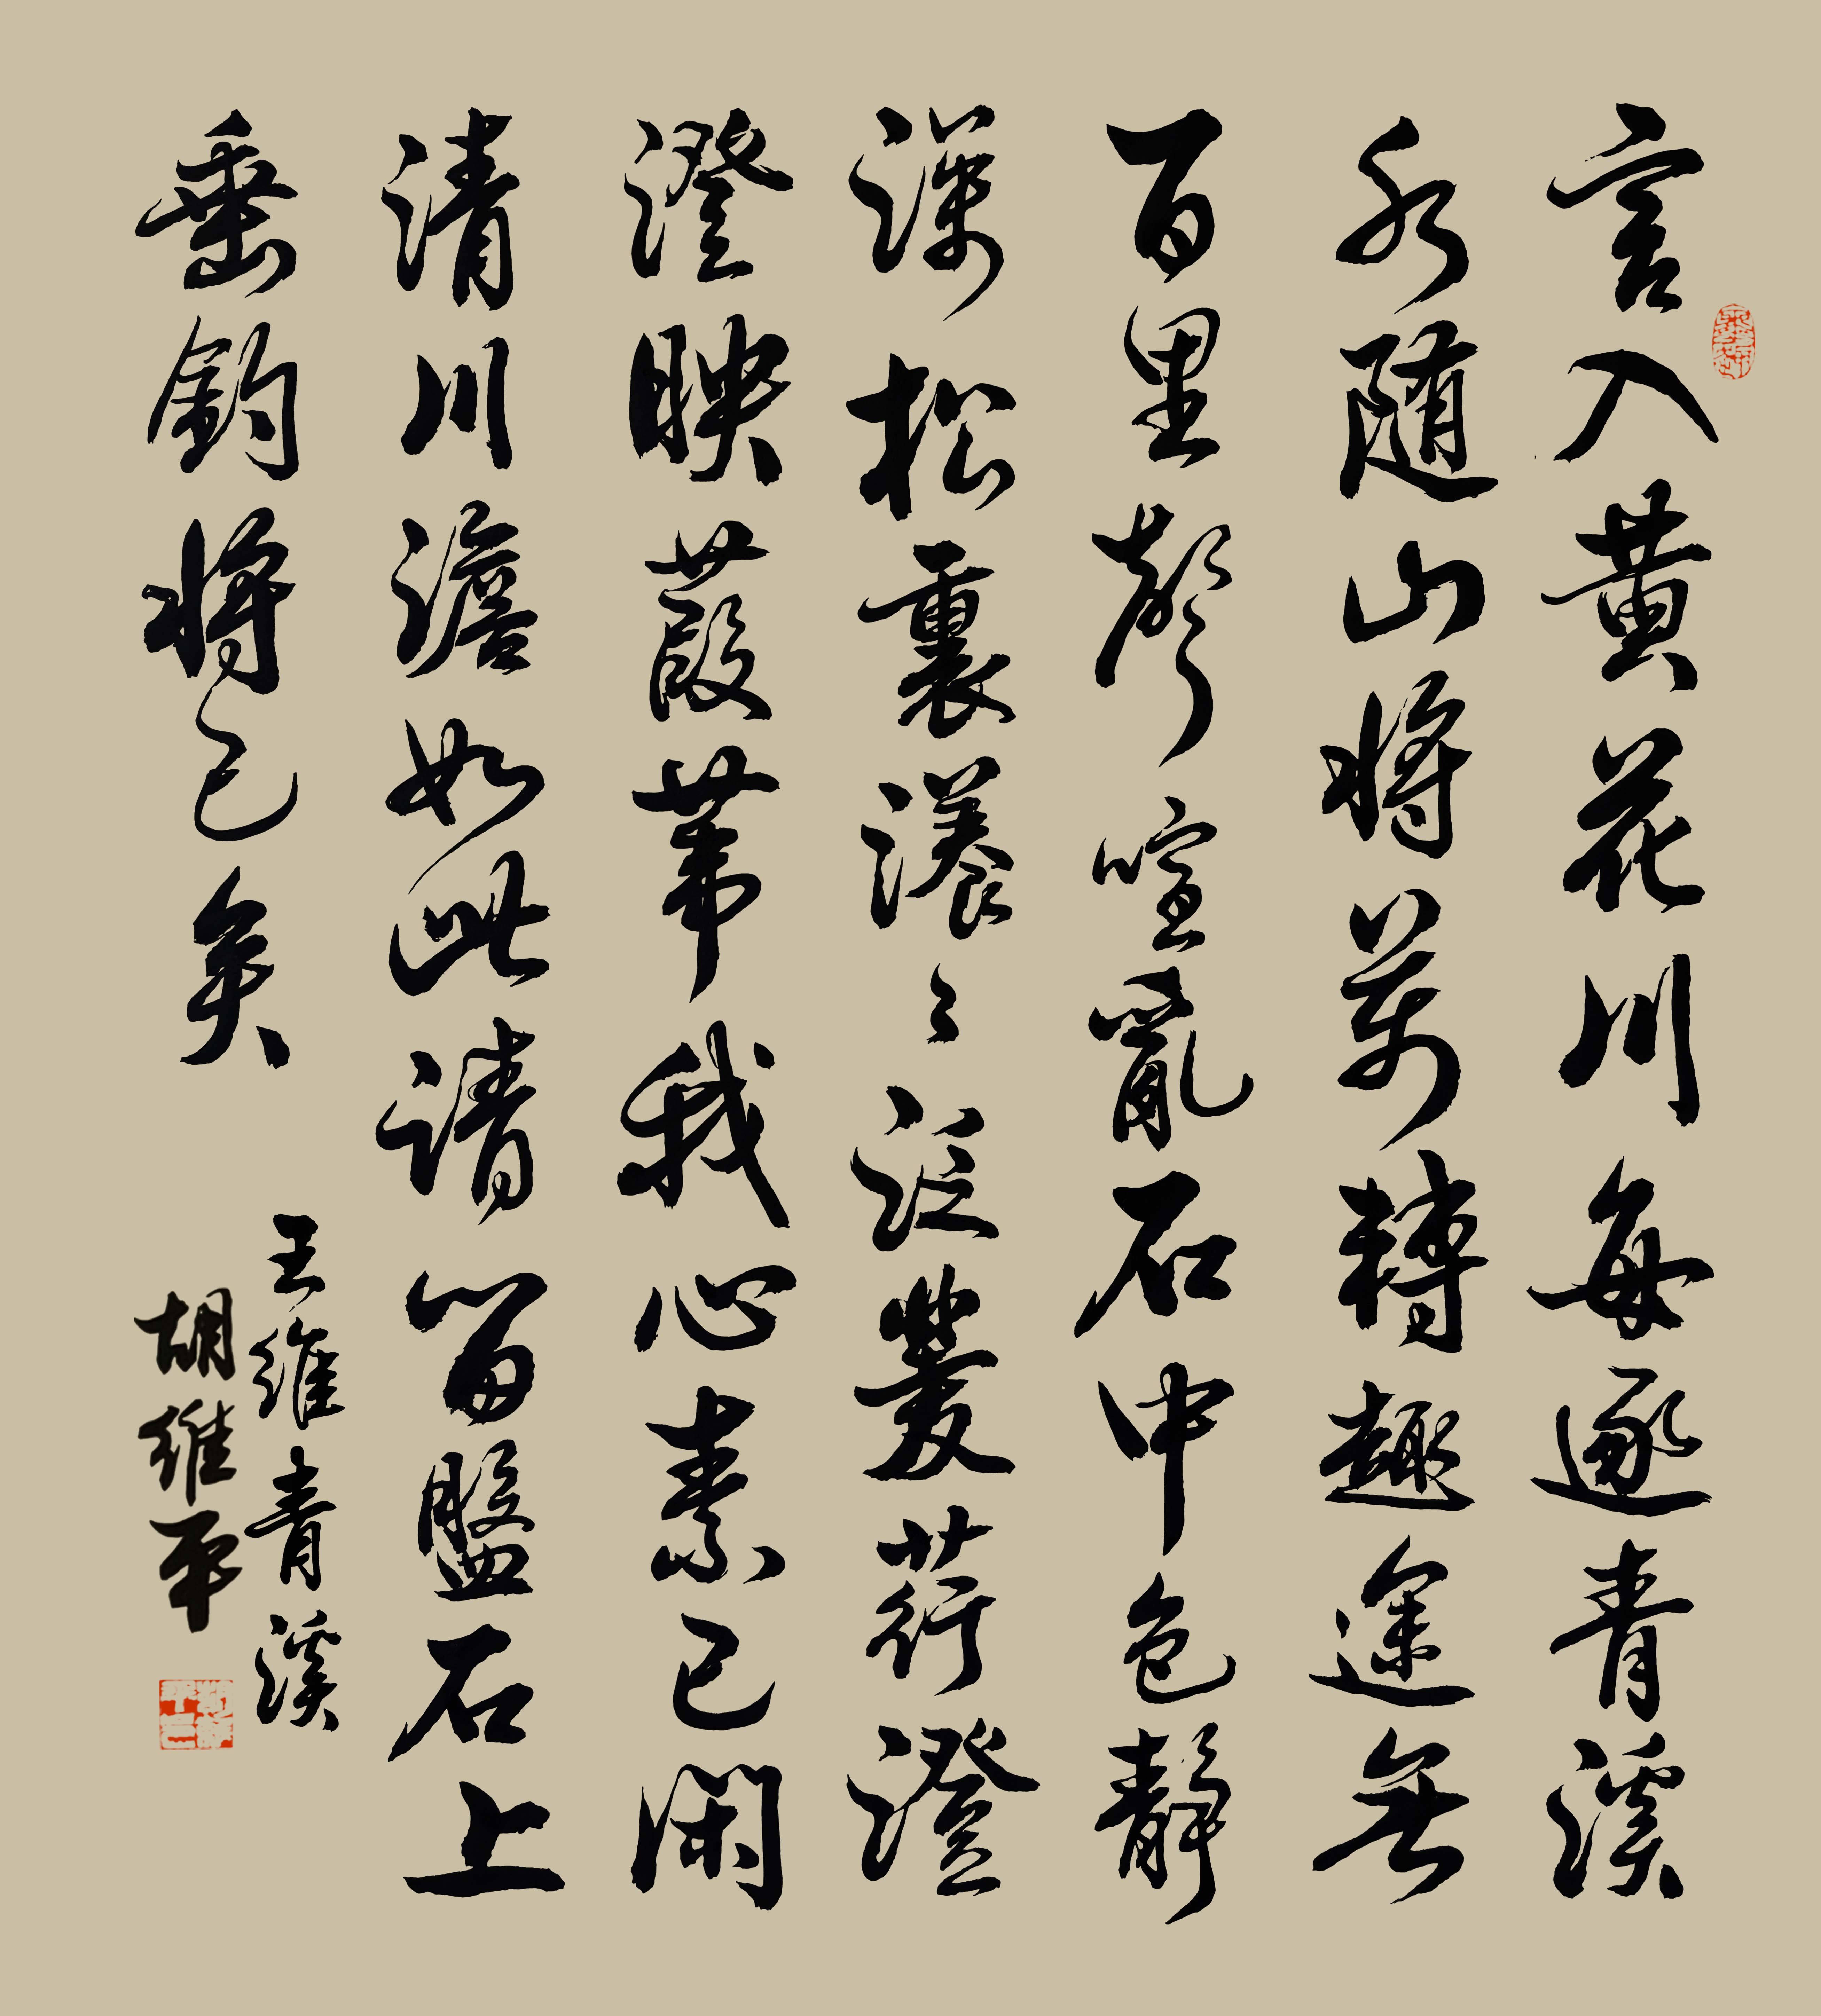 言入黄花川每逐青溪
水隨山將萬轉趣途無
百里聲喧亂石中色靜
深松裏漾〻泛菱荇澄
澄映葭葦我心素已閑
清川澹如此請留盤石上
垂釣將已矣
王維青溪
胡維平